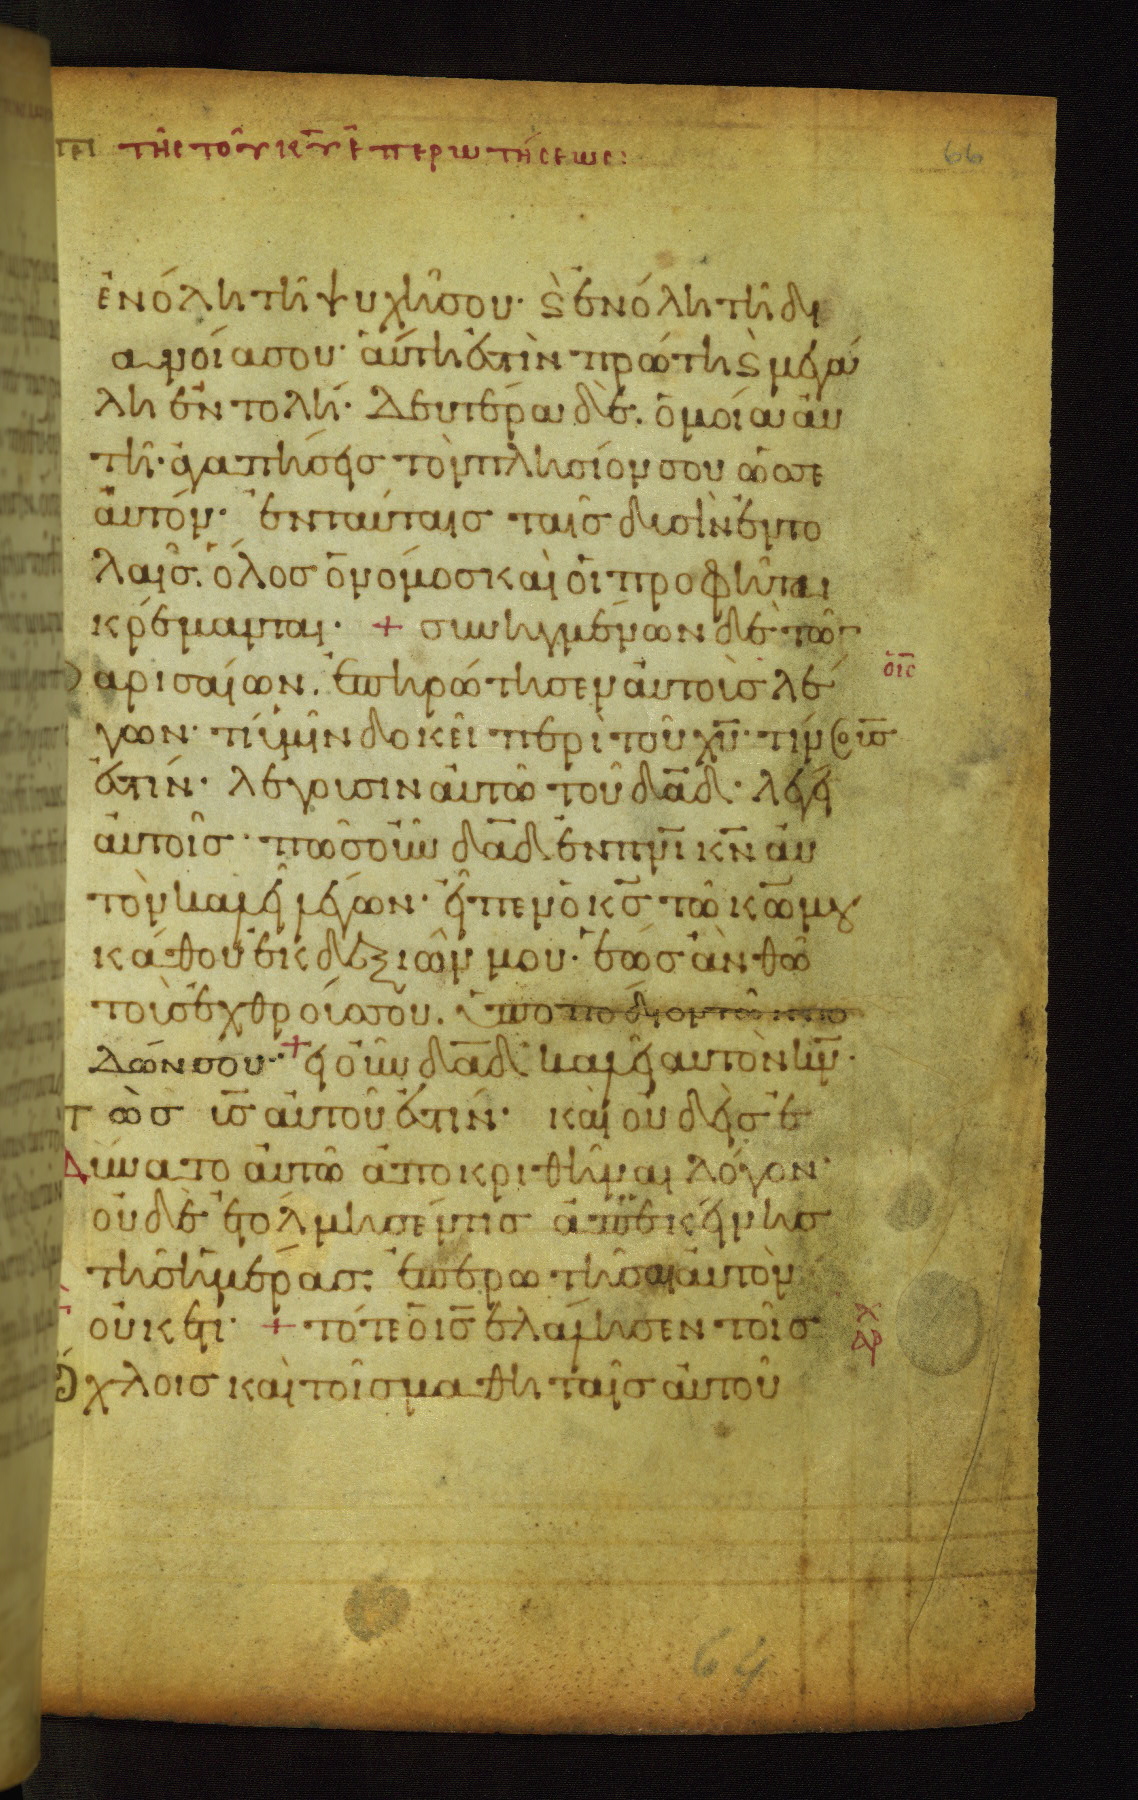 τῆς τοῦ κ̅υ̅ ἐπερωτήσεως: 66
ἐν ὅλη τῆ ψυχῆ σου· ϛ ἐν ὅλη τῆ δι
ανοία σου· αὕτη ἐστὶν πρώτη ϛ μεγά
λη ἐντολή· Δευτέρα δὲ. ὁμοία αὐ
τῆ· ἀγαπήσεις τὸν πλησίον σου ὡς σε
αὐτόν· ἐν ταύταις ταῖς δυσὶν ἐντο
λαῖς. ὅλος ὁ νόμος καὶ οἱ προφῆται
κρέμανται· + συνηγμένων δὲ τῶν
αρισαίων. ἐπηρώτησεν αὐτοὺς λέ
οις
γων· τί ὑμῖν δοκεῖ περὶ τοῦ χ̅υ̅· τίνος υ̅ς̅
ἐστίν· λέγουσιν αὐτῶ τοῦ δ̅α̅δ̅· λέγει
αὐτοῖς· πῶς οὖν δ̅α̅δ̅ ἐν π̅ν̅ι̅ κ̅ν̅ αὐ
τὸν καλεῖ λέγων· εἶπεν ὁ κ̅ς̅ τῶ κ̅ω̅ μου
κάθου ἐκ δεξιῶν μου· ἕως ἂν θῶ
τοὺς ἐχθρούς σου. ὑποπόδιον τῶν πο
δῶν σου· + εἰ οὖν δ̅α̅δ̅ καλεῖ αυτὸν κ̅ν̅·
πὼς υ̅ς̅ αὐτοῦ ἐστίν· καὶ οὐδεὶς ἐ
δύνατο αὐτῶ ἀποκριθῆναι λόγον·
οὐδὲ ἐτόλμησέν τις ἀπ ἐκείνης
τῆς ἡμέρας. ἐπερωτῆσαι αὐτὸν
οὐκέτι· + τότε ὁ ι̅ς̅ ἐλάλησεν τοῖς
ὄχλοις καὶ τοῖς μαθηταῖς αὐτοῦ
64